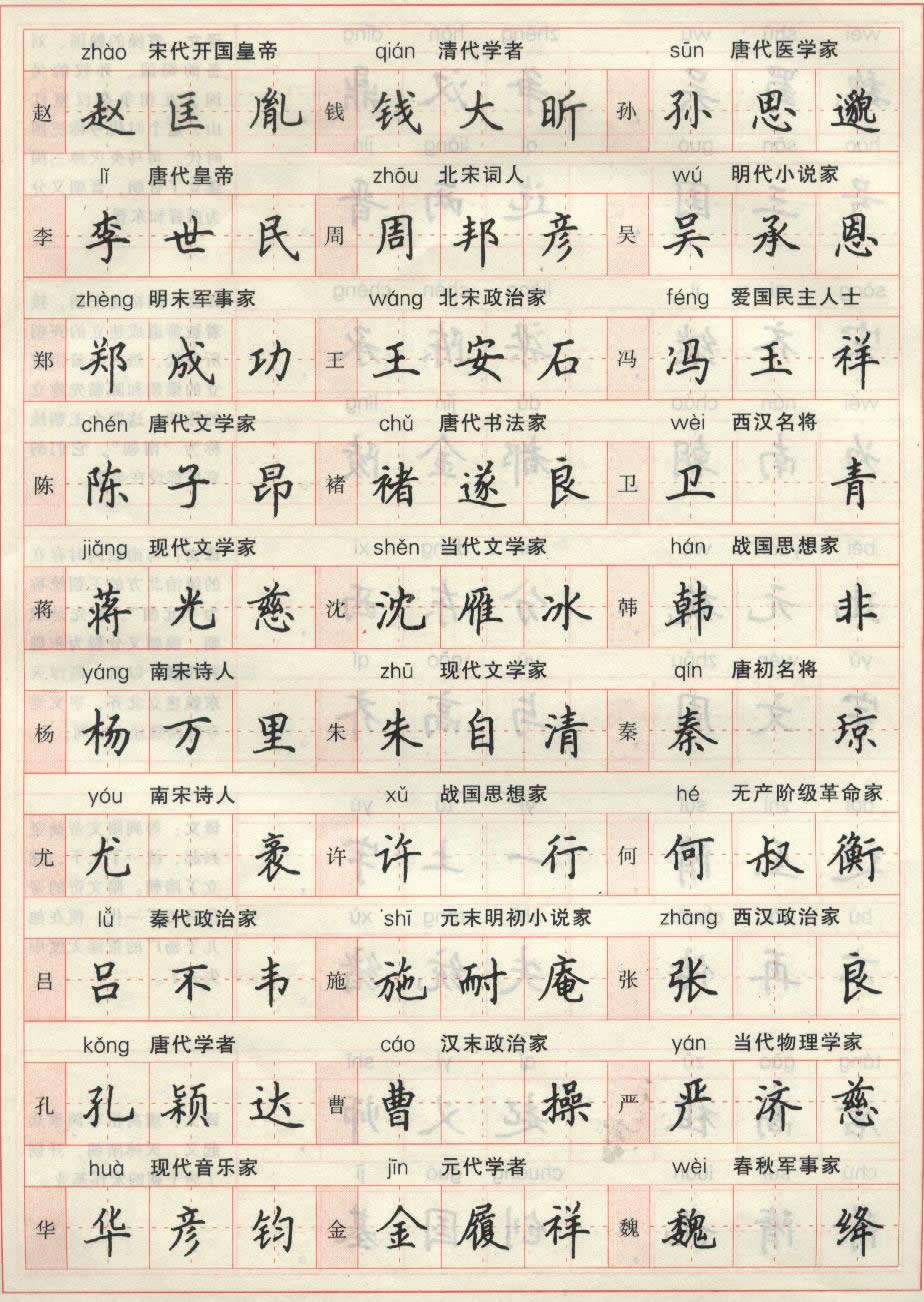 zhào 宋代开国皇帝 qián 清代学者 sūn 唐代医学家
赵 赵匡胤 钱 钱大昕 孙 孙思邈
lǐ 唐代皇帝 zhōu 北宋词人 wú 明代小说家
李 李世民 周 周邦彦 吴 吴承恩
zhèng 明末军事家 wáng 北宋政治家 féng 爱国民主人士
郑 郑成功 王 王安石 冯 冯玉祥
chén 唐代文学家 chǔ 唐代书法家 wèi 西汉名将
陈 陈子昂 褚 褚遂良 卫 卫青
jiǎng 现代文学家 shěn 当代文学家 hán 战国思想家
蒋 蒋光慈 沈 沈雁冰 韩 韩非
yáng 南宋诗人 zhū 现代文学家 qín 唐初名将
杨 杨万里 朱 朱自清 秦 秦琼
yóu 南宋诗人 xǔ 战国思想家 hé 无产阶级革命家
尤 尤袤 许 许行 何 何叔衡
lǚ 秦代政治家 shī 元末明初小说家 zhāng 西汉政治家
吕 吕不韦 施 施耐庵 张 张良
kǒng 唐代学者 cáo 汉末政治家 yán 当代物理学家
孔 孔颖达 曹 曹操 严 严济慈
huà 现代音乐家 jīn 元代学者 wèi 春秋军事家
华 华彦钧 金 金履祥 魏 魏绛